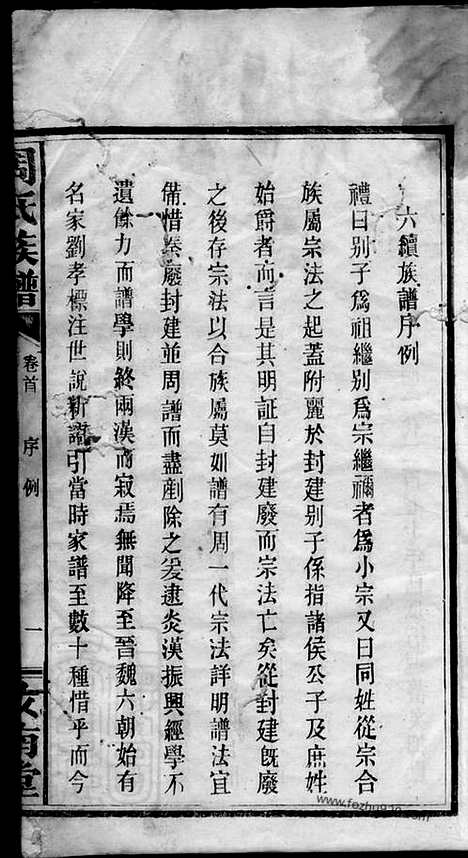 六續族譜序例
禮曰别子爲祖繼别爲宗繼禰者爲小宗又曰同姓從宗合
族屬宗法之起蓋附麗於封建别子係指諸侯公子及庶姓
始爵者而言是其明証自封建廢而宗法亡矣從封建旣廢
之後存宗法以合族屬莫如譜有周一代宗法詳明譜法宜
備惜秦廢封建並周譜而盡剷除之爰逮炎漢振興經學不
遺餘力而譜學則終兩漢而寂焉無聞降至晉魏六朝始有
名家劉孝標注世說新語引當時家譜至數十種惜乎而今
周氏族譜
卷首
序例
一
堂
www.fezhu910.com